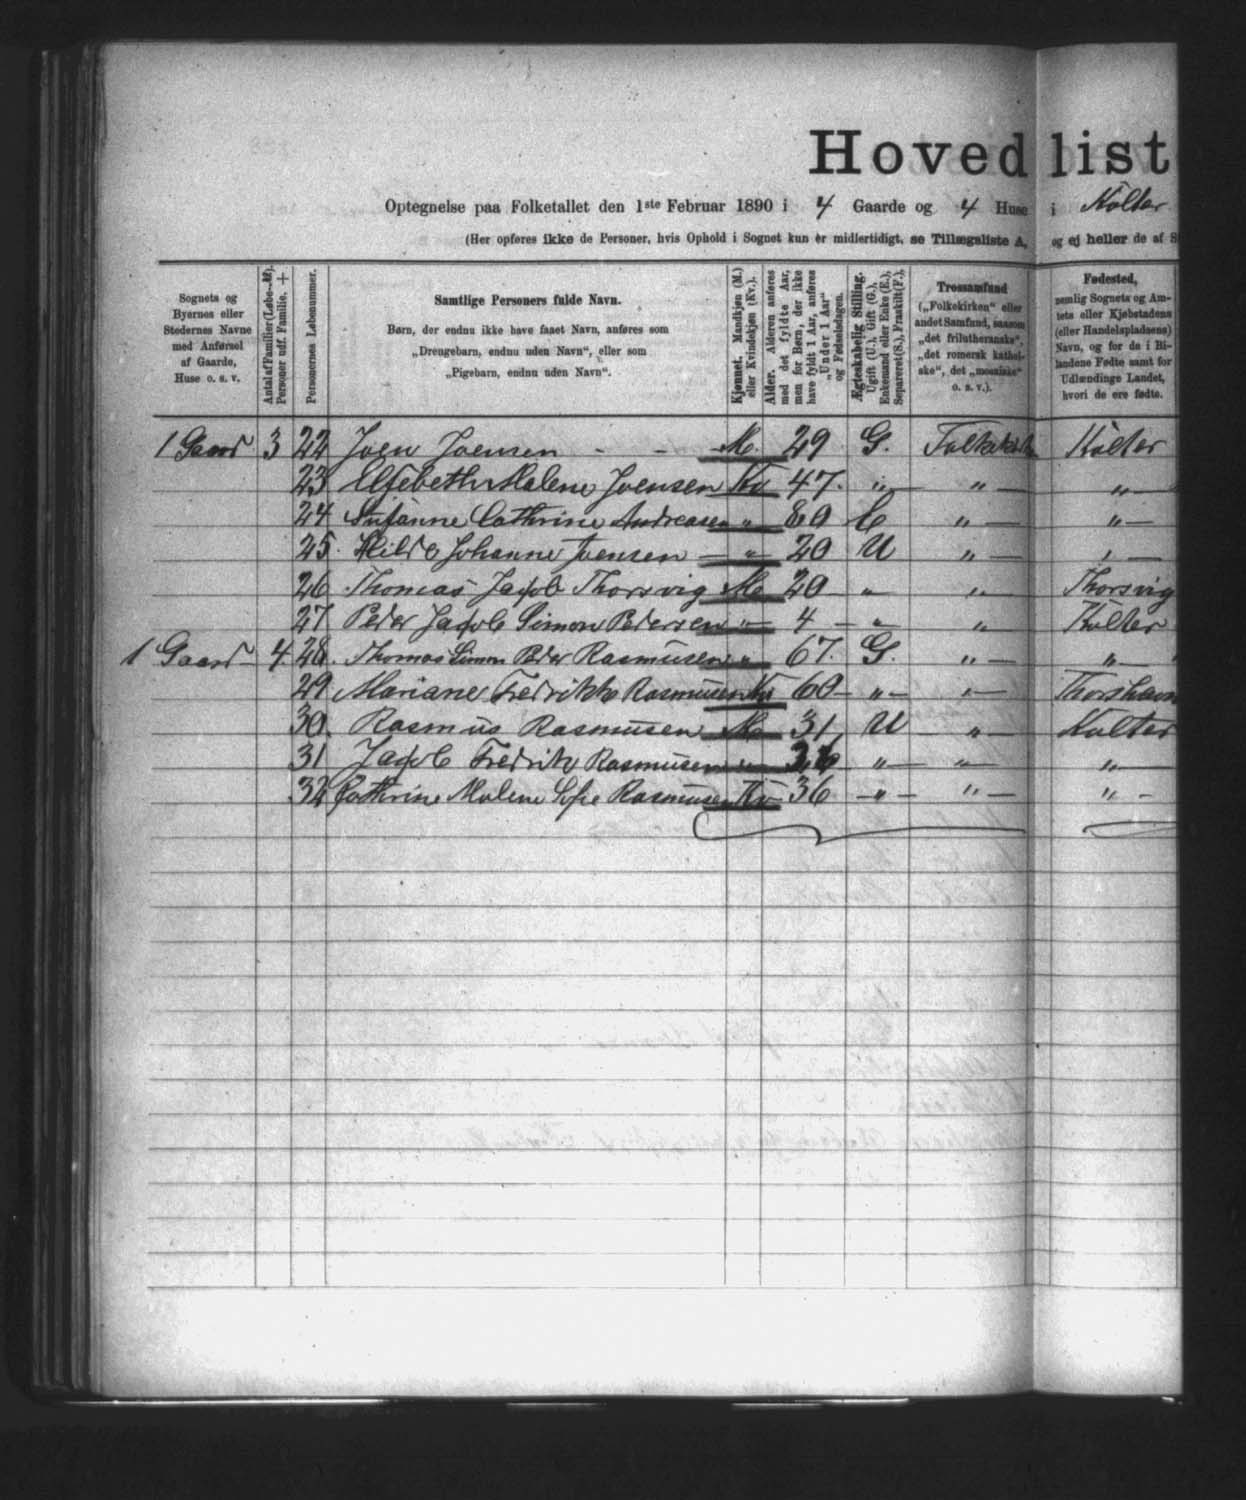 Hovedlist
Optegnelse paa Folketallet den 1ste Februar 1890 i 4 Gaarde og 4 Huse i Kolter
(Her opføres ikke de Personer, hvis Ophold i Sognet kun er midlertidigt, se Tillægsliste A, og ej heller de af S
Sognets og Byernes eller Stedernes Navne med Anførsel af Gaarde, Huse o. s. v.
Antal af Familier (Løbe-№). Personer udf. Familie. +
Personernes Løbenummer.
Samtlige Personers fulde Navn.
Børn, der endnu ikke have faaet Navn, anføres som
„Drengebarn, endnu uden Navn“, eller som
„Pigebarn, endnu uden Navn“.
Kjønnet. Mandkjøn (M.) eller Kvindekjøn (Kv.).
Alder. Alderen anføres med det fyldte Aar, men for Børn, der ikke have fyldt 1 Aar, anføres „Under 1 Aar“ og Fødselsdagen.
Ægteskabelig Stilling. Ugift (U.), Gift (G.), Enkemand eller Enke (E.), Separeret (S.), Fraskilt (F.).
Trossamfund („Folkekirken“ eller andet Samfund, saasom „det frilutheranske“, „det romersk katholske“, det „mosaiske“ o. s. v.).
Fødested, nemlig Sognets og Amtets eller Kjøbstadens (eller Handelspladsens) Navn, og for de i Bilandene Fødte samt for Udlændinge Landet, hvori de ere fødte.
1 Gaard 3 22 Joen Joensen - - M. 29 G. Kolter
23 Elsebeth Malene Joensen Kv 47. " " "
24 Susanne Cathrine Andreasen " 80 E " "
25. Johanne Joensen " 20 U "
26 Thomas Jacob Thorsvig M 20 " " Thorsvig
27 Peder Jacob Simon Pedersen " 4 " " Kolter
1 Gaard 4. 28. Thomas Simon Peder Rasmussen " 67. G. " "
29 Mariane Fredrikke Rasmussen Kv 60 " " Thorshavn
30. Rasmus Rasmussen M 31 U " Kolter
31 Jacob Fredrik Rasmussen " " " "
32 Cathrine Malene Sofie Rasmussen Kv 36 " " "